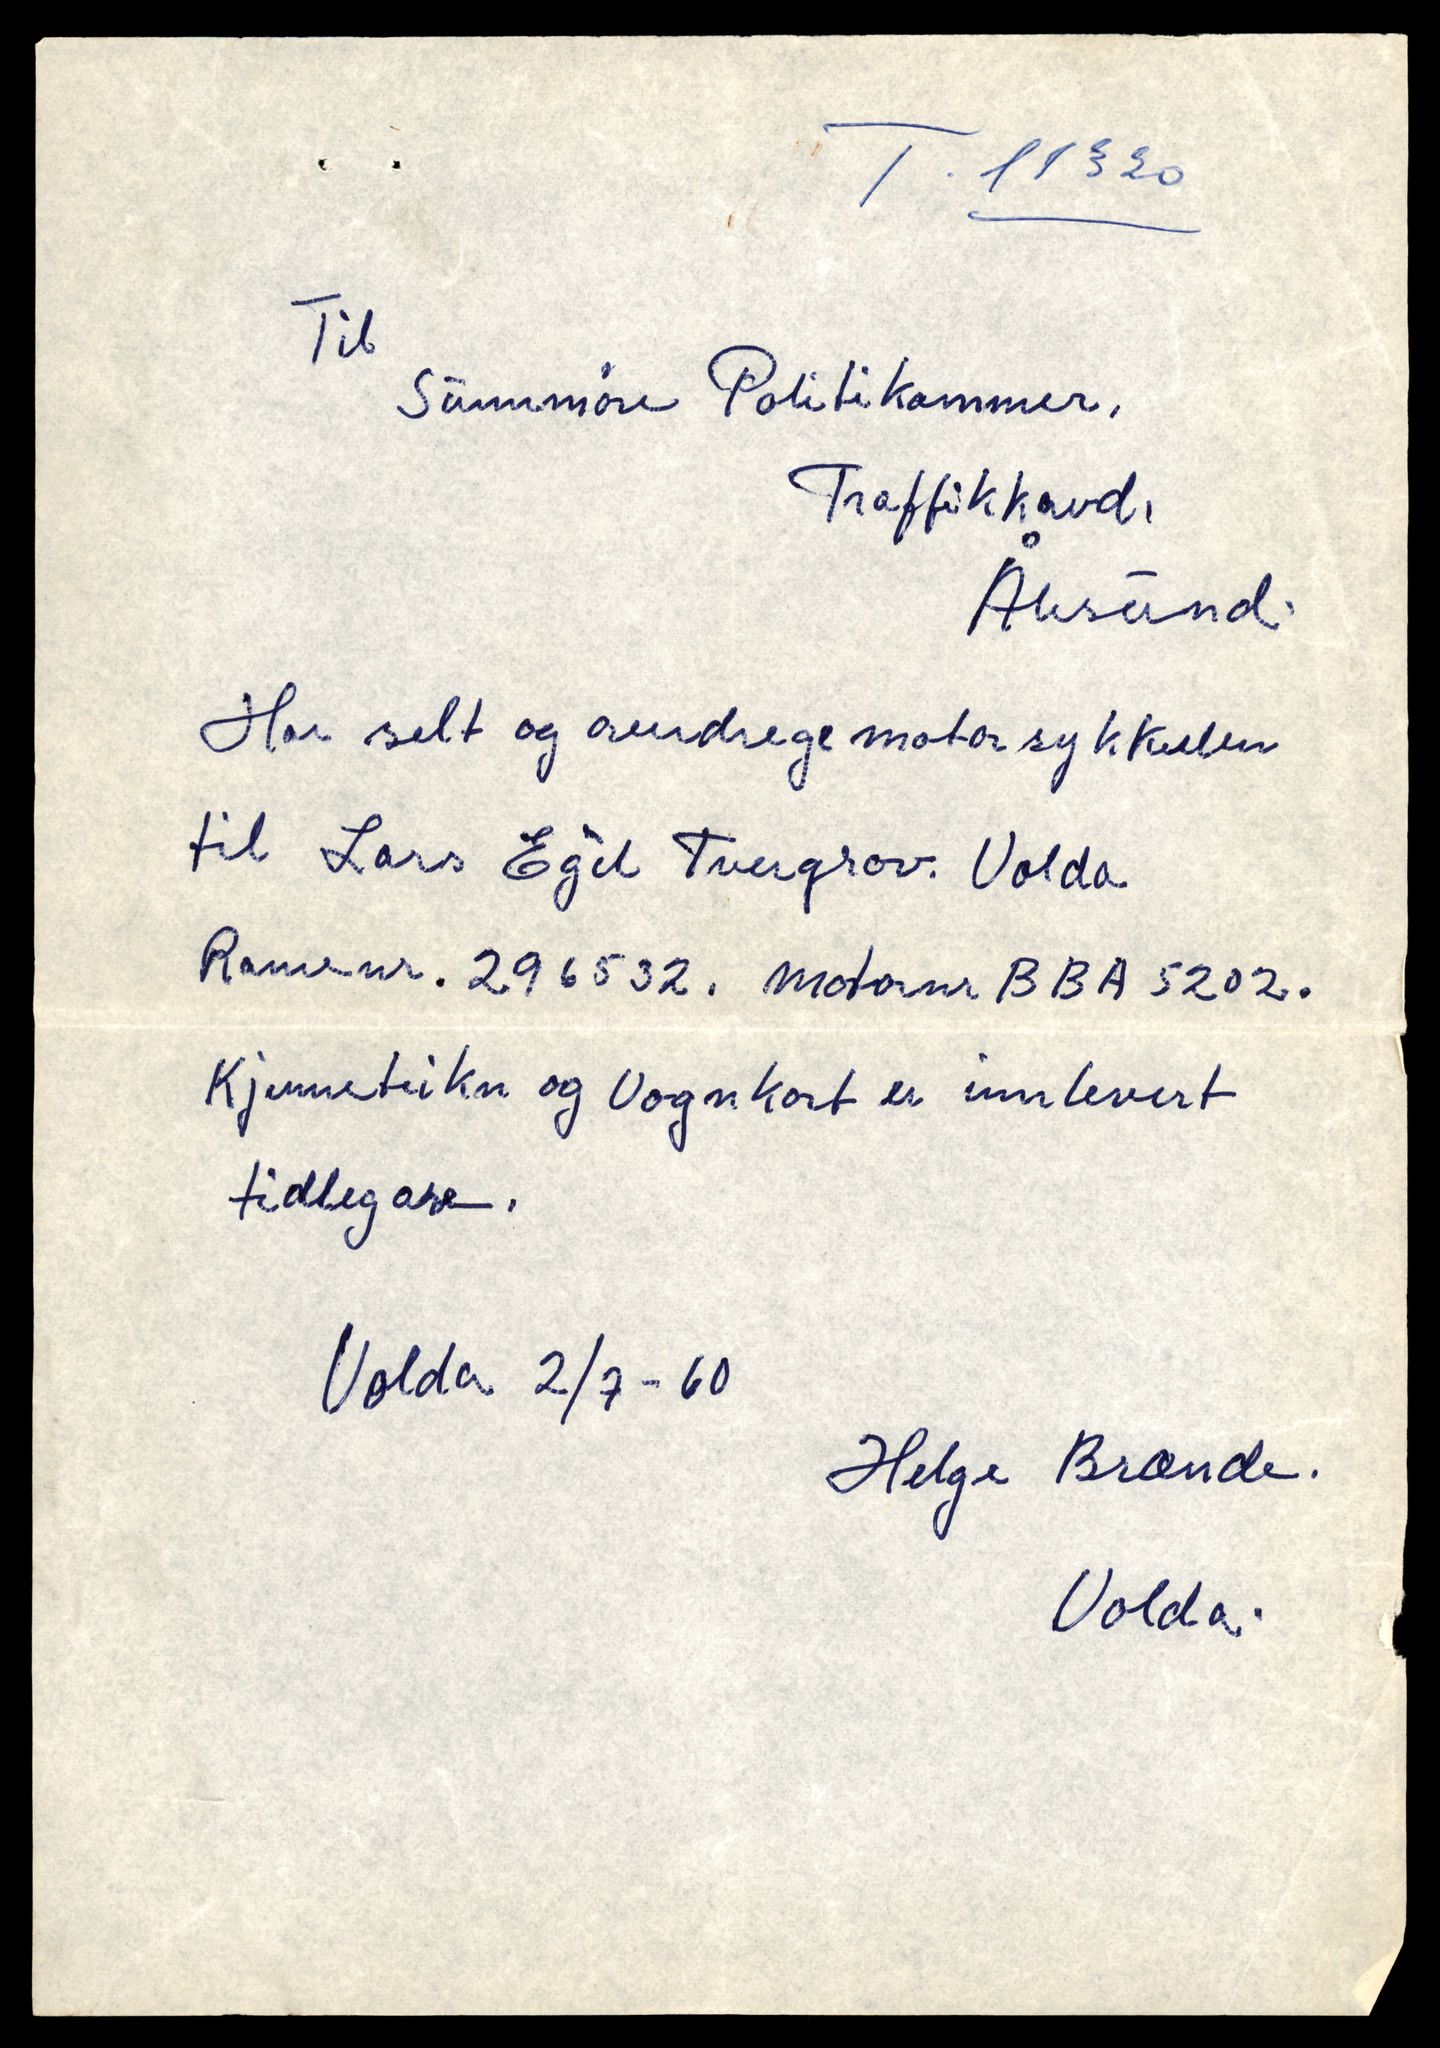 T. 11320
Til
Sunnmöre Politikammer.
Traffikkavd.
Ålesund.
Har selt og overdrege motorsykkelen
til Lars Egil Tvergrov. Volda
Ramenr. 296532. Motornr BBA 5202.
Kjenneteikn og Vognkort er innlevert
tidlegare.
Volda 2/7-60
Helge Brænde.
Volda.